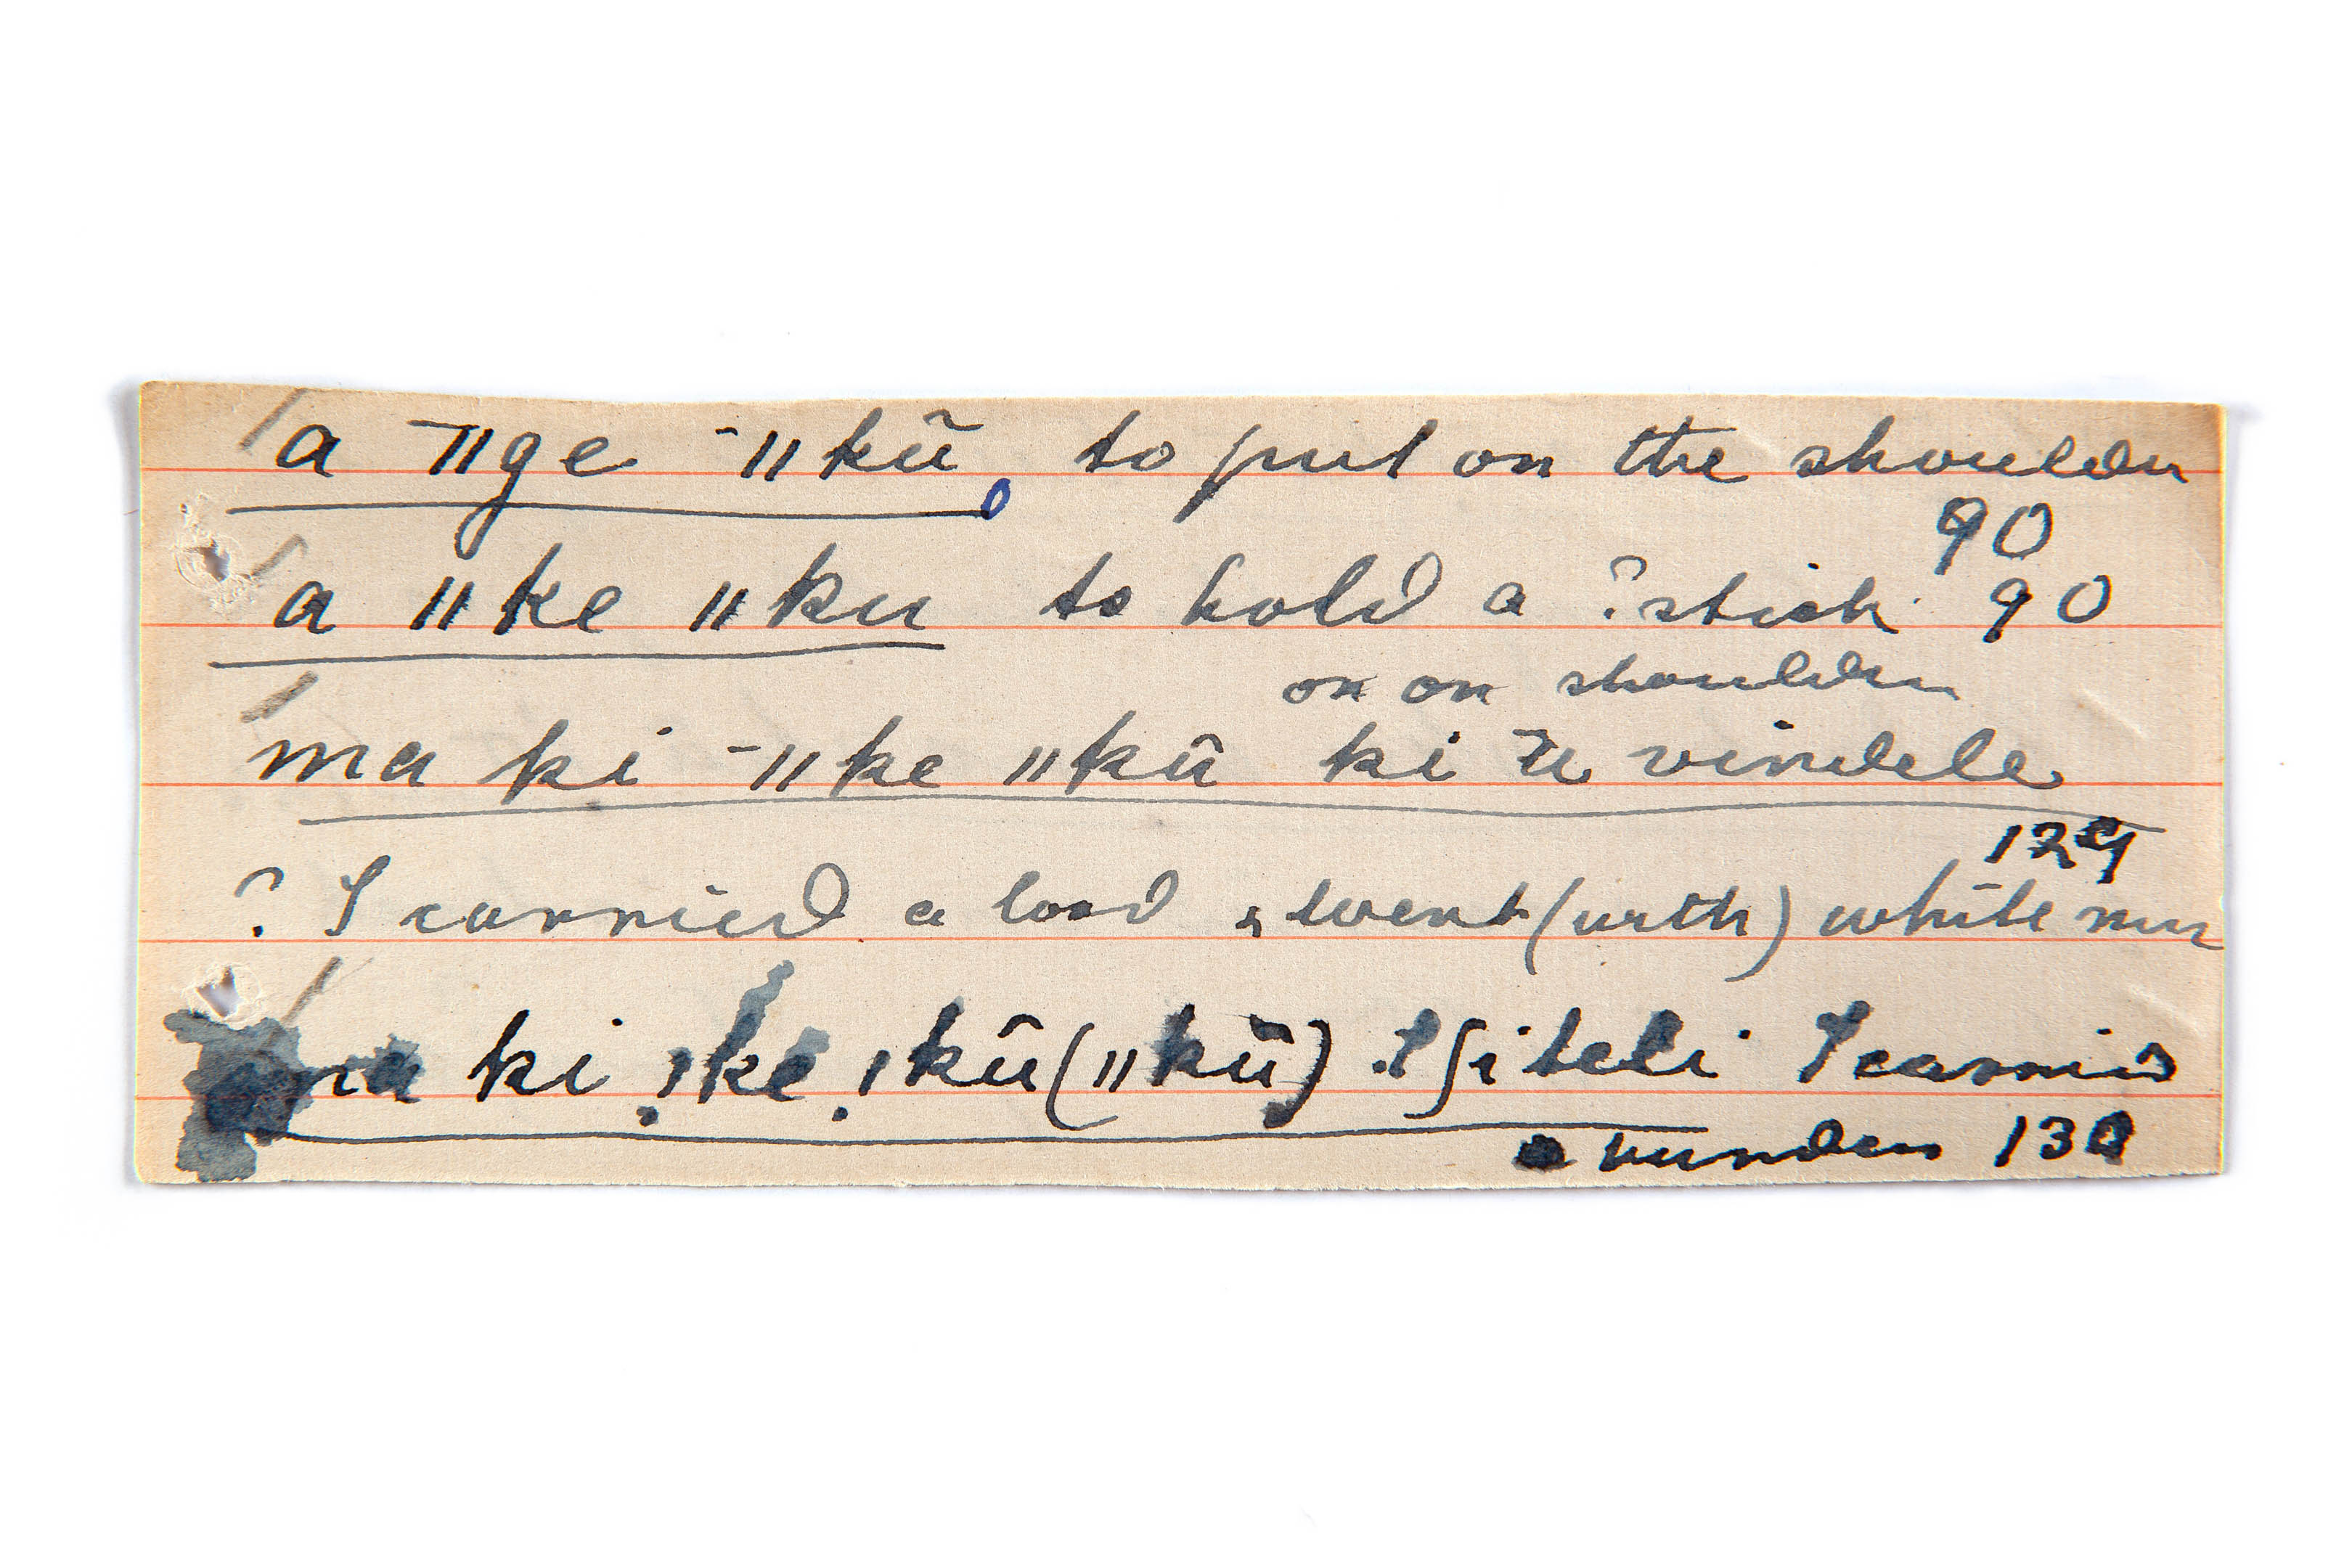 a ‾ǁge ‾ǁkũ to put on the shoulder
90
a ǁke ǁku to hold a ? stick 90
on on shoulder
ma ki ‾ǁke ǁkû ki vindele
129
? I carried a load & went (with) white men
ma ki ǃke ǃkû (ǁkû) ʃiteli I carried
130